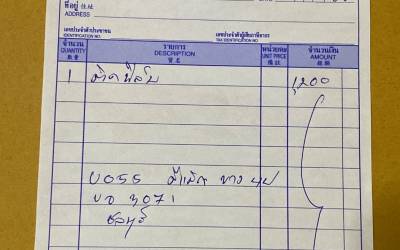 ที่อยู่ 住址
ADDRESS
เลขประจำตัวประชาชน เลขประจำตัวผู้เสียภาษีอากร
IDENTIFICATION NO. TAX IDENTIFICATION NO.
จำนวน รายการ หน่วยละ จำนวนเงิน
QUANTITY DESCRIPTION UNIT PRICE AMOUNT
数量 貨名 價訊 金額
1 ติดฟิล์ม 1,200
บอ 3071
ชลบุรี